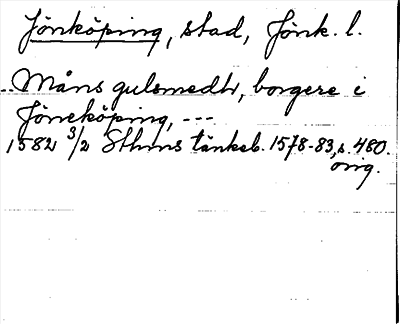 Jönköping, stad, Jönk. l.
..Måns gulsmedh, borgere i
Jöneköping, ---
1582 3/2 Sthms tänkeb. 1578-83, s. 480.
orig.